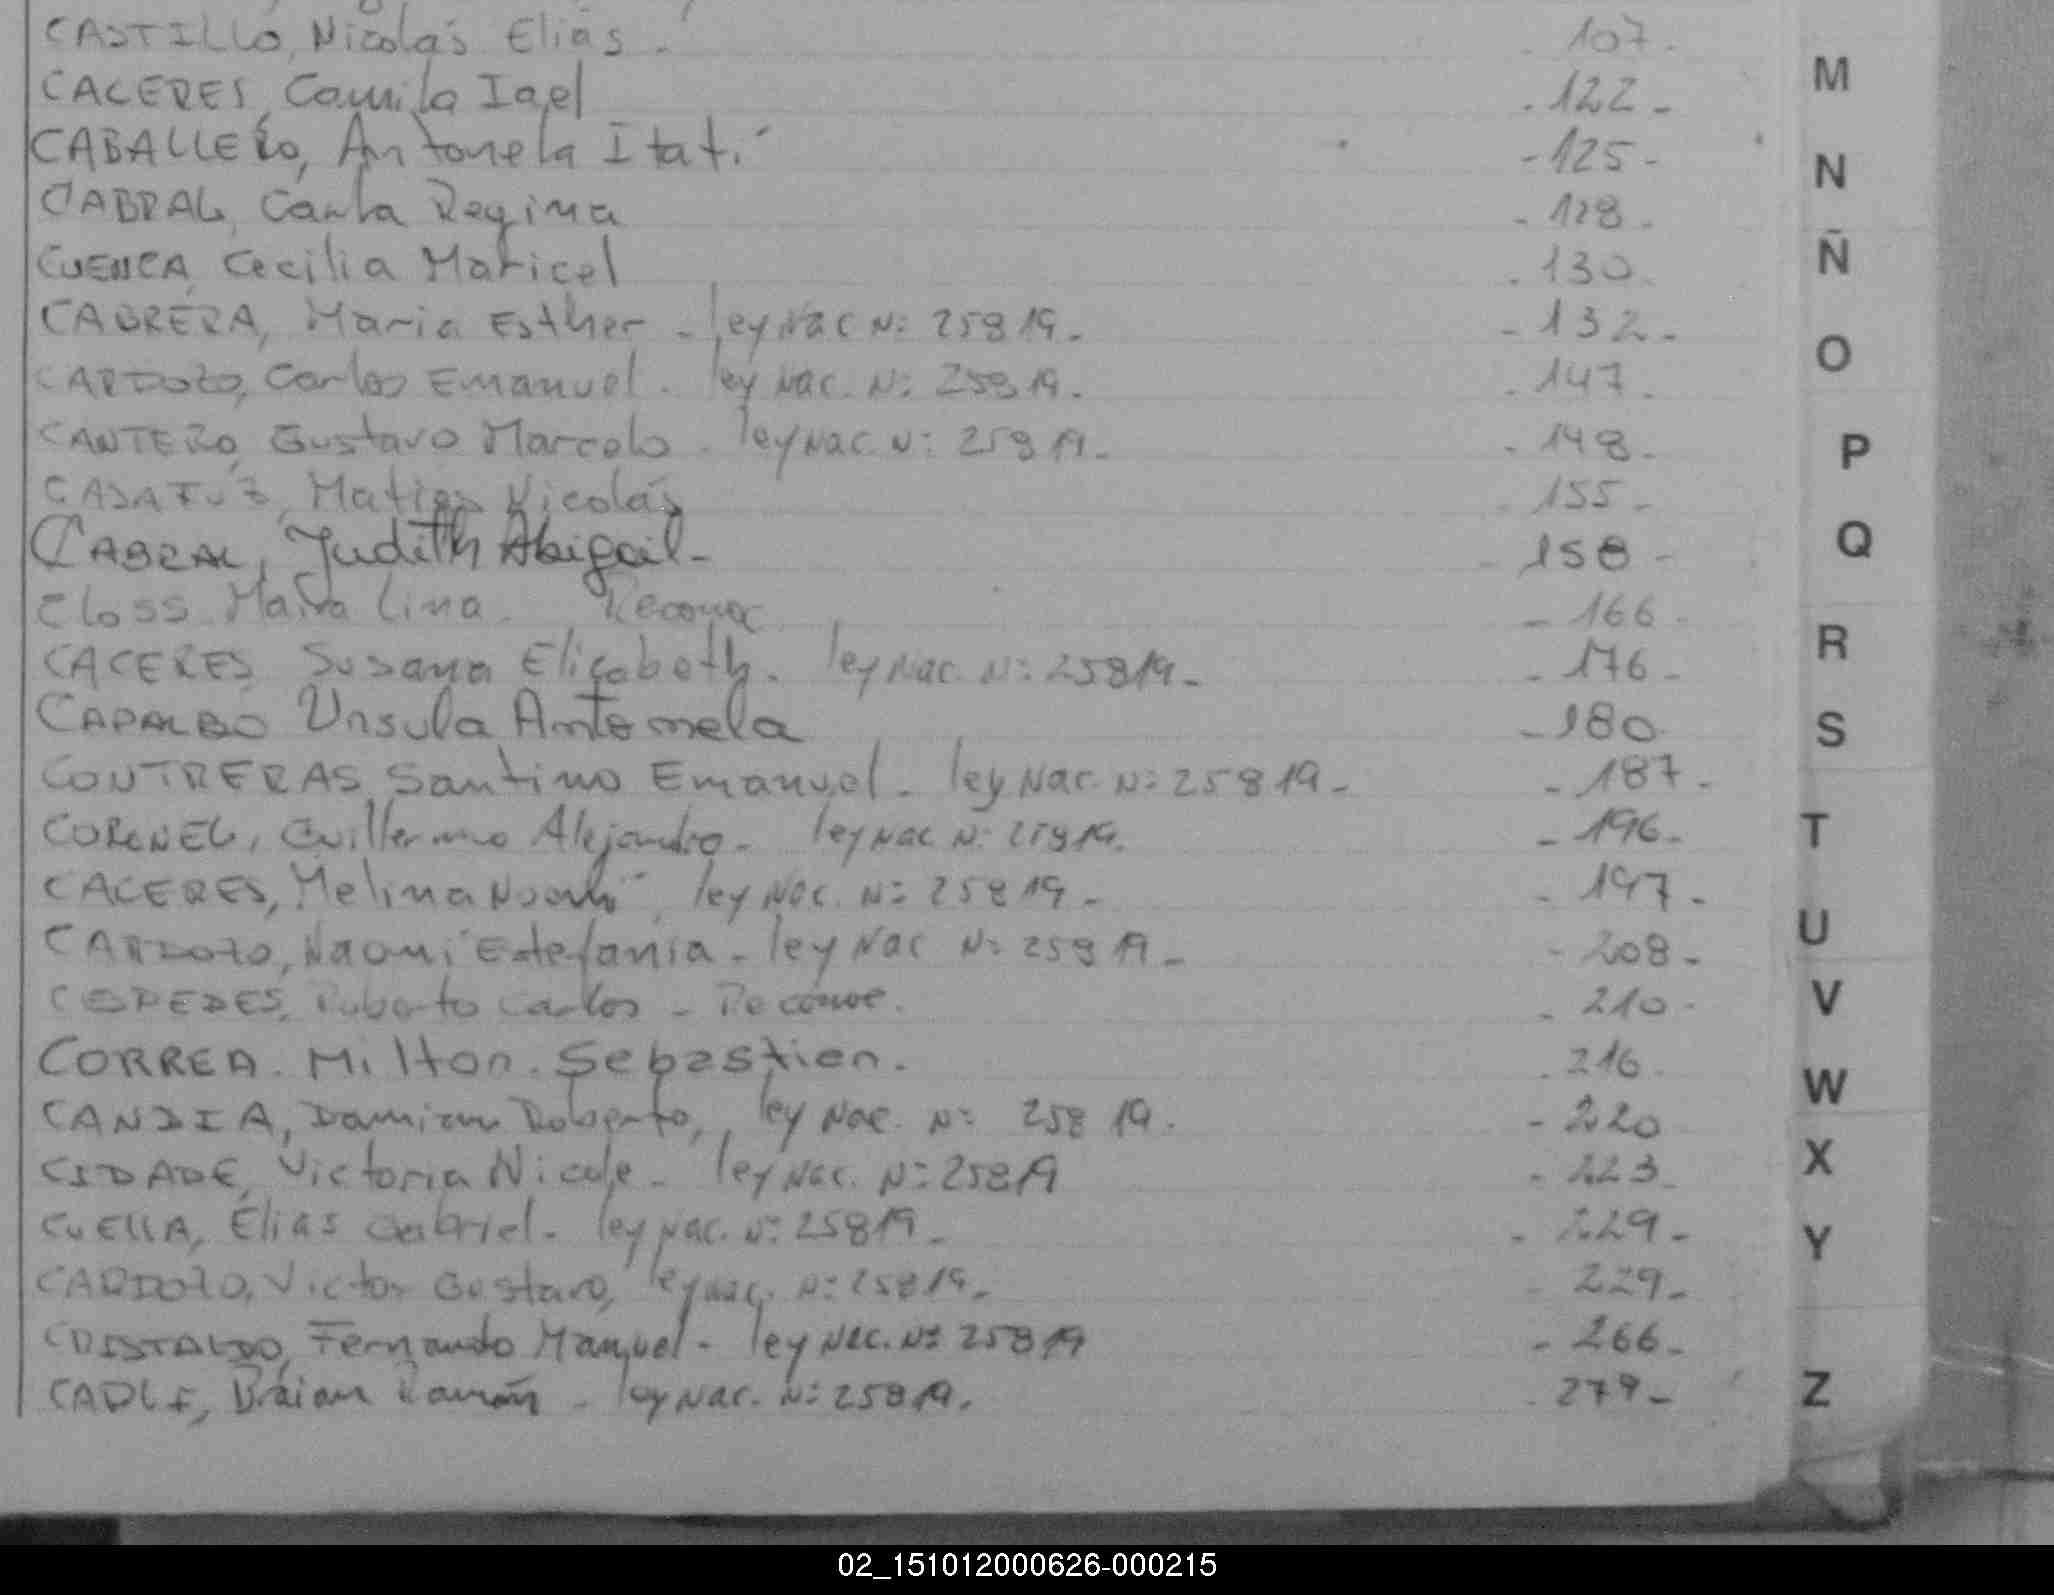 CASTILLO, Nicolás Elías - 107 -
CACERES, Camila Iael - 122 -
CABALLERO, Antonela Itatí - 125 -
CABRAL, Carla Regina - 128 -
CUENCA, Cecilia Maricel - 130 -
CABRERA, Maria Esther - ley Nac N: 25819 - - 132 -
CARDOZO, Carlos Emanuel - ley Nac. N: 25819 - - 147 -
CANTERO, Gustavo Marcelo - ley Nac. N: 25819 - - 148 -
Matias Nicolás 155 -
CABRAL, Judith Abigail - - 158 -
Closs Maira Lina - Reconoc - 166 -
CACERES, Susana Elizabeth - ley Nac. N: 25819 - - 176 -
CAPALBO Ursula Antonela - 180 -
CONTRERAS, Santino Emanuel - ley Nac. N: 25819 - - 187 -
CORONEL, Guillermo Alejandro - ley Nac N: 25819. - 196 -
CACERES, Melina Noemí, ley Nac. N: 25819 - - 197 -
CARDOZO, Naomi Estefania - ley Nac N: 25819 - - 208 -
CESPEDES, Roberto Carlos - Reconoc. - 210 -
CORREA. Milton. Sebastien. - 216 -
CANDIA, Damian Roberto, ley Nac. N: 25819. - 220
CIDADE, Victoria Nicole - ley Nac. N: 25819 - 223 -
CUELLA, Elias Gabriel - ley Nac. N: 25819 - - 229 -
CARDOZO, Victor Gustavo, ley Nac. N: 25819 - 229 -
CRISTALDO, Fernando Manuel - ley Nac. N: 25819 - 266 -
Braian Ramón - ley Nac. N: 25819. - 279 -
M
N
Ñ
O
P
Q
R
S
T
U
V
W
X
Y
Z
02_151012000626-000215